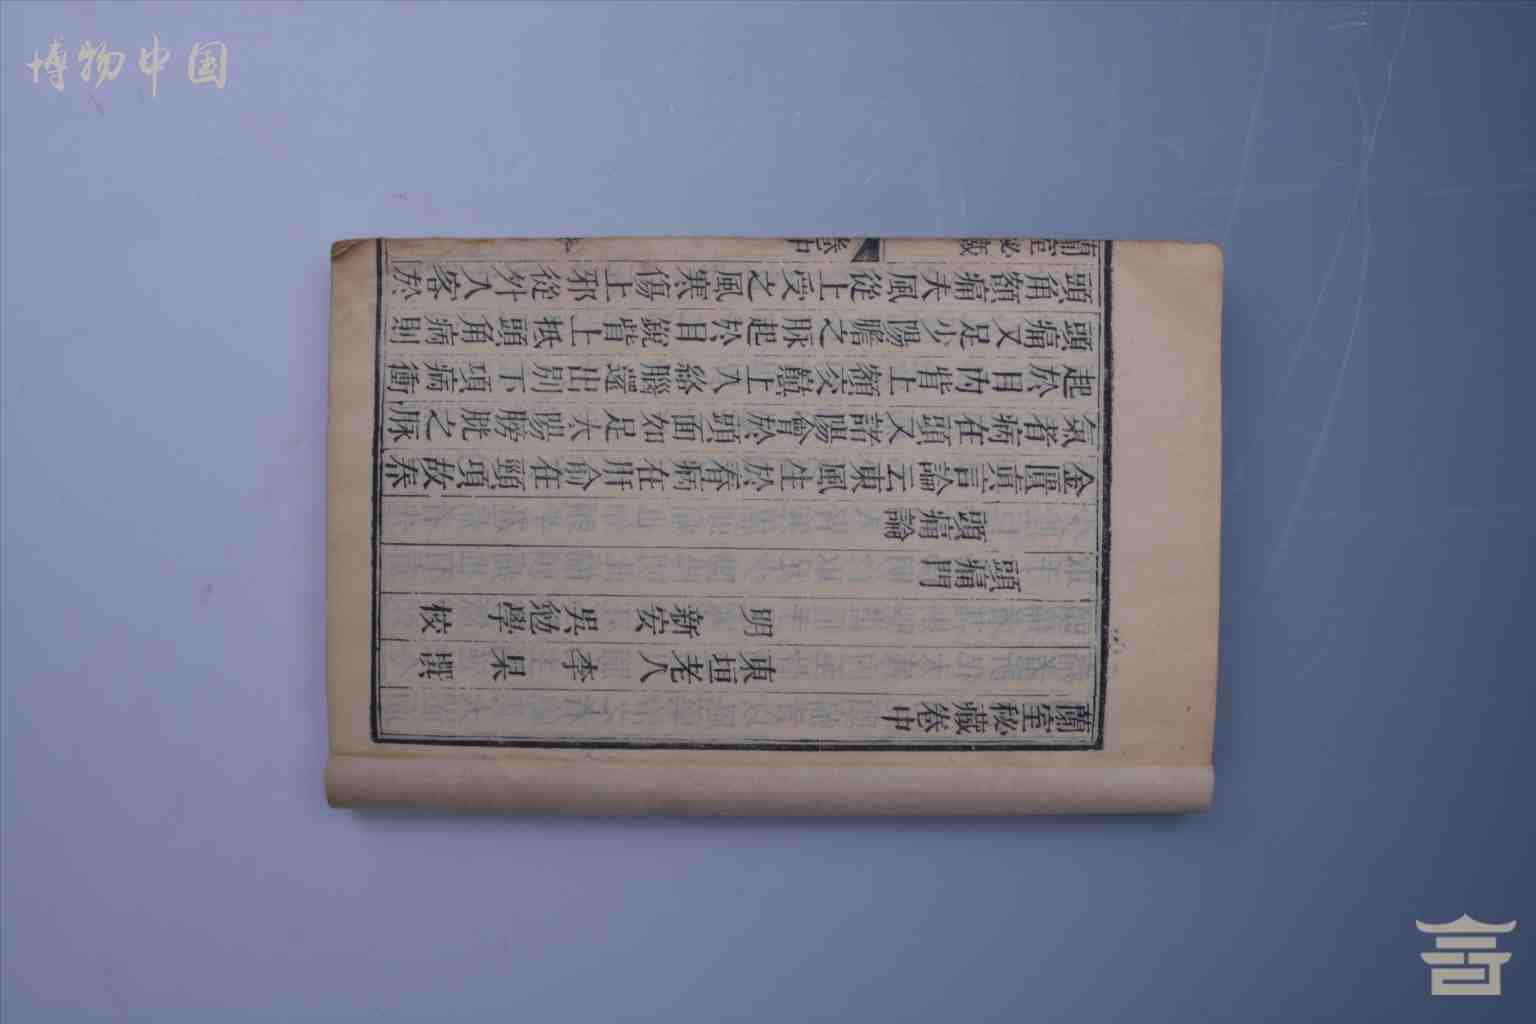 博物中国
蘭室秘藏卷中
東垣老人李杲撰
明新安吳勉學校
頭痛門
頭痛論
金匱眞言論云東風生於春病在肝俞在頸項故春
氣者病在頭又諸陽會於頭面如足太陽膀胱之脉
起於目內眥上額交巔上入絡腦還出別下項病衝
頭痛又足少陽膽之脉起於目銳眥上抵頭角病則
頭角額痛夫風從上受之風寒傷上邪從外入客於
蘭室秘藏 卷中